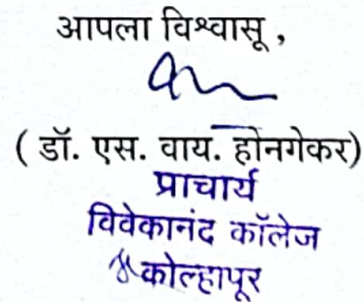 आपला विश्वासू ,
( डॉ. एस. वाय. होनगेकर)
प्राचार्य
विवेकानंद कॉलेज
कोल्हापूर